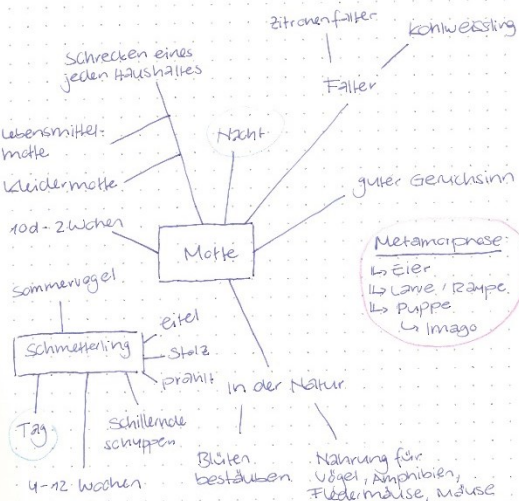 Zitronenfalter
Kohlweissling
Schrecken eines
jeden Haushaltes
Falter
Lebensmittel-
motte
Nacht
Kleidermotte
guter Geruchsinn
10d - 2 Wochen
Motte
Metamorphose
↳ Eier
↳ Larve / Raupe
↳ Puppe
↳ Imago
Sommervogel
eitel
Schmetterling
Stolz
prahlt
in der Natur
Tag
Schillernde
schuppen
Blüten
bestäuben
Nahrung für
Vögel, Amphibien,
Fledermäuse, Mäuse
4-12 Wochen